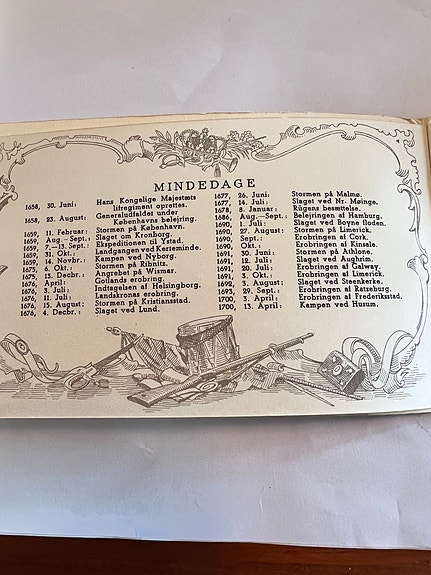 MINDEDAGE
1658, 30. Juni: Hans Kongelige Majestæts
livregiment oprettes.
1658, 23. August: Generaludfaldet under
Københavns belejring.
1659, 11. Februar: Stormen på København.
1659, Aug.-Sept.: Slaget om Kronborg.
1659, 7.—13. Sept.: Ekspeditionen til Ystad.
1659, 31. Okt.: Landgangen ved Kerteminde.
1659, 14. Novbr.: Kampen ved Nyborg.
1675, 6. Okt.: Stormen på Ribnitz.
1675, 13. Decbr.: Angrebet på Wismar.
1676, April: Gotlands erobring.
1676, 3. Juli: Indtagelsen af Helsingborg.
1676, 11. Juli: Landskronas erobring.
1676, 15. August: Stormen på Kristiansstad.
1676, 4. Decbr.: Slaget ved Lund.
1677, 26. Juni: Stormen på Malmø.
1677, 14. Juli: Slaget ved Nr. Møinge.
1678, 8. Januar: Rügens besættelse.
1686, Aug.—Sept.: Belejringen af Hamburg.
1690, 1. Juli: Slaget ved Boyne floden.
1690, 27. August: Stormen på Limerick.
1690, Sept.: Erobringen af Cork.
1690, Okt.: Erobringen af Kinsale.
1691, 30. Juni: Stormen på Athlone.
1691, 12. Juli: Slaget ved Aughrim.
1691, 20. Juli: Erobringen af Galway.
1691, 3. Okt.: Erobringen af Limerick.
1692, 3. August: Slaget ved Steenkerke.
1693, 29. Sept.: Erobringen af Ratzeburg.
1700, 3. April: Erobringen af Frederiksstad.
1700, 13. April: Kampen ved Husum.